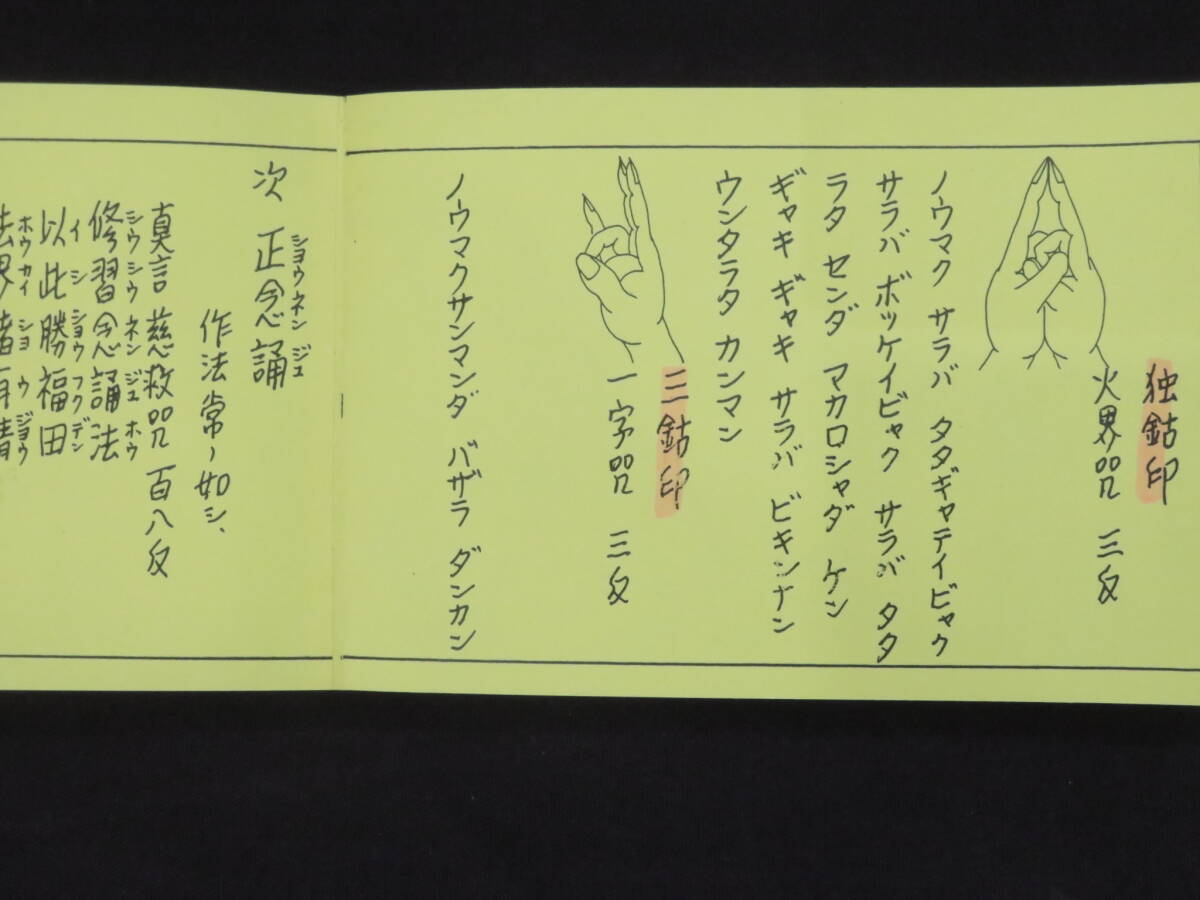 独鈷印
火界咒 三反
ノウマク サラバ タタギャテイビャク
サラバ ボッケイビャク サラバ タタ
ラタ センダ マカロシャダ ケン
ギャキ ギャキ サラバ ビキンナン
ウンタラタ カンマン
三鈷印
一字咒 三反
ノウマクサンマンダ バザラ ダンカン
次 正念誦
ショウネンジュ
作法常ノ如シ、
真言 慈救咒 百八反
修習念誦法
シウシウネンジュホウ
以此勝福田
イシショウフクデン
法界諸有情
ホウカイショウジョウ